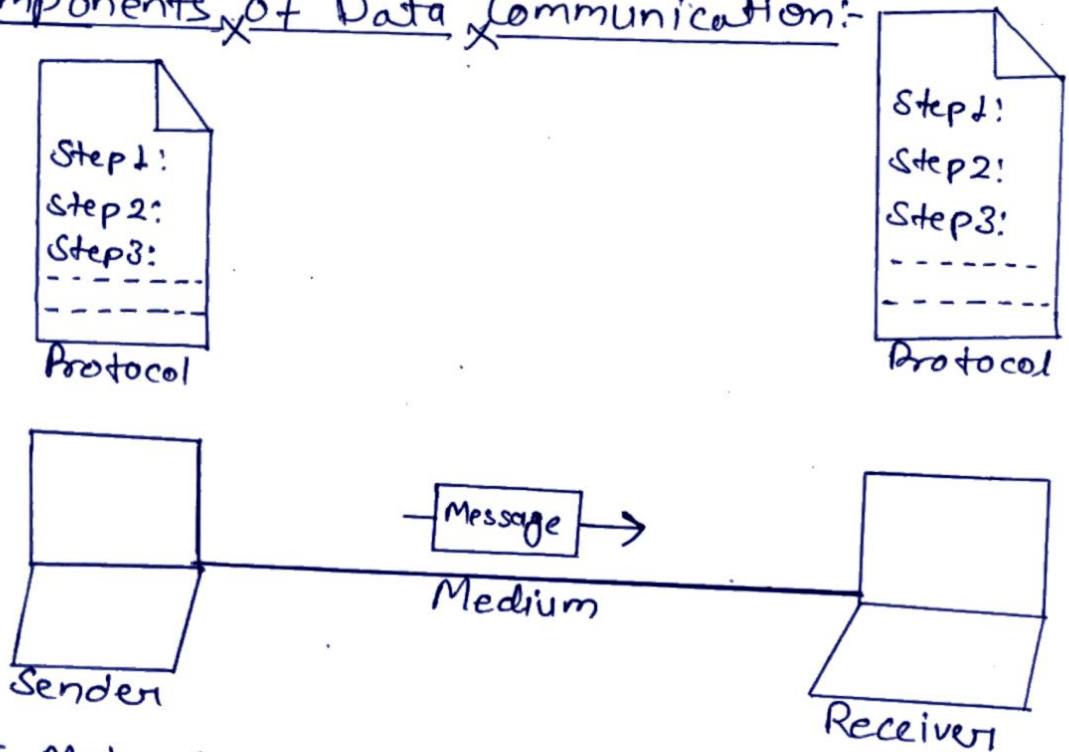 mponents of Data Communication:-
Step1:
Step2:
Step3:
Protocol
Step1:
Step2:
Step3:
Protocol
Message
Medium
Sender
Receiver